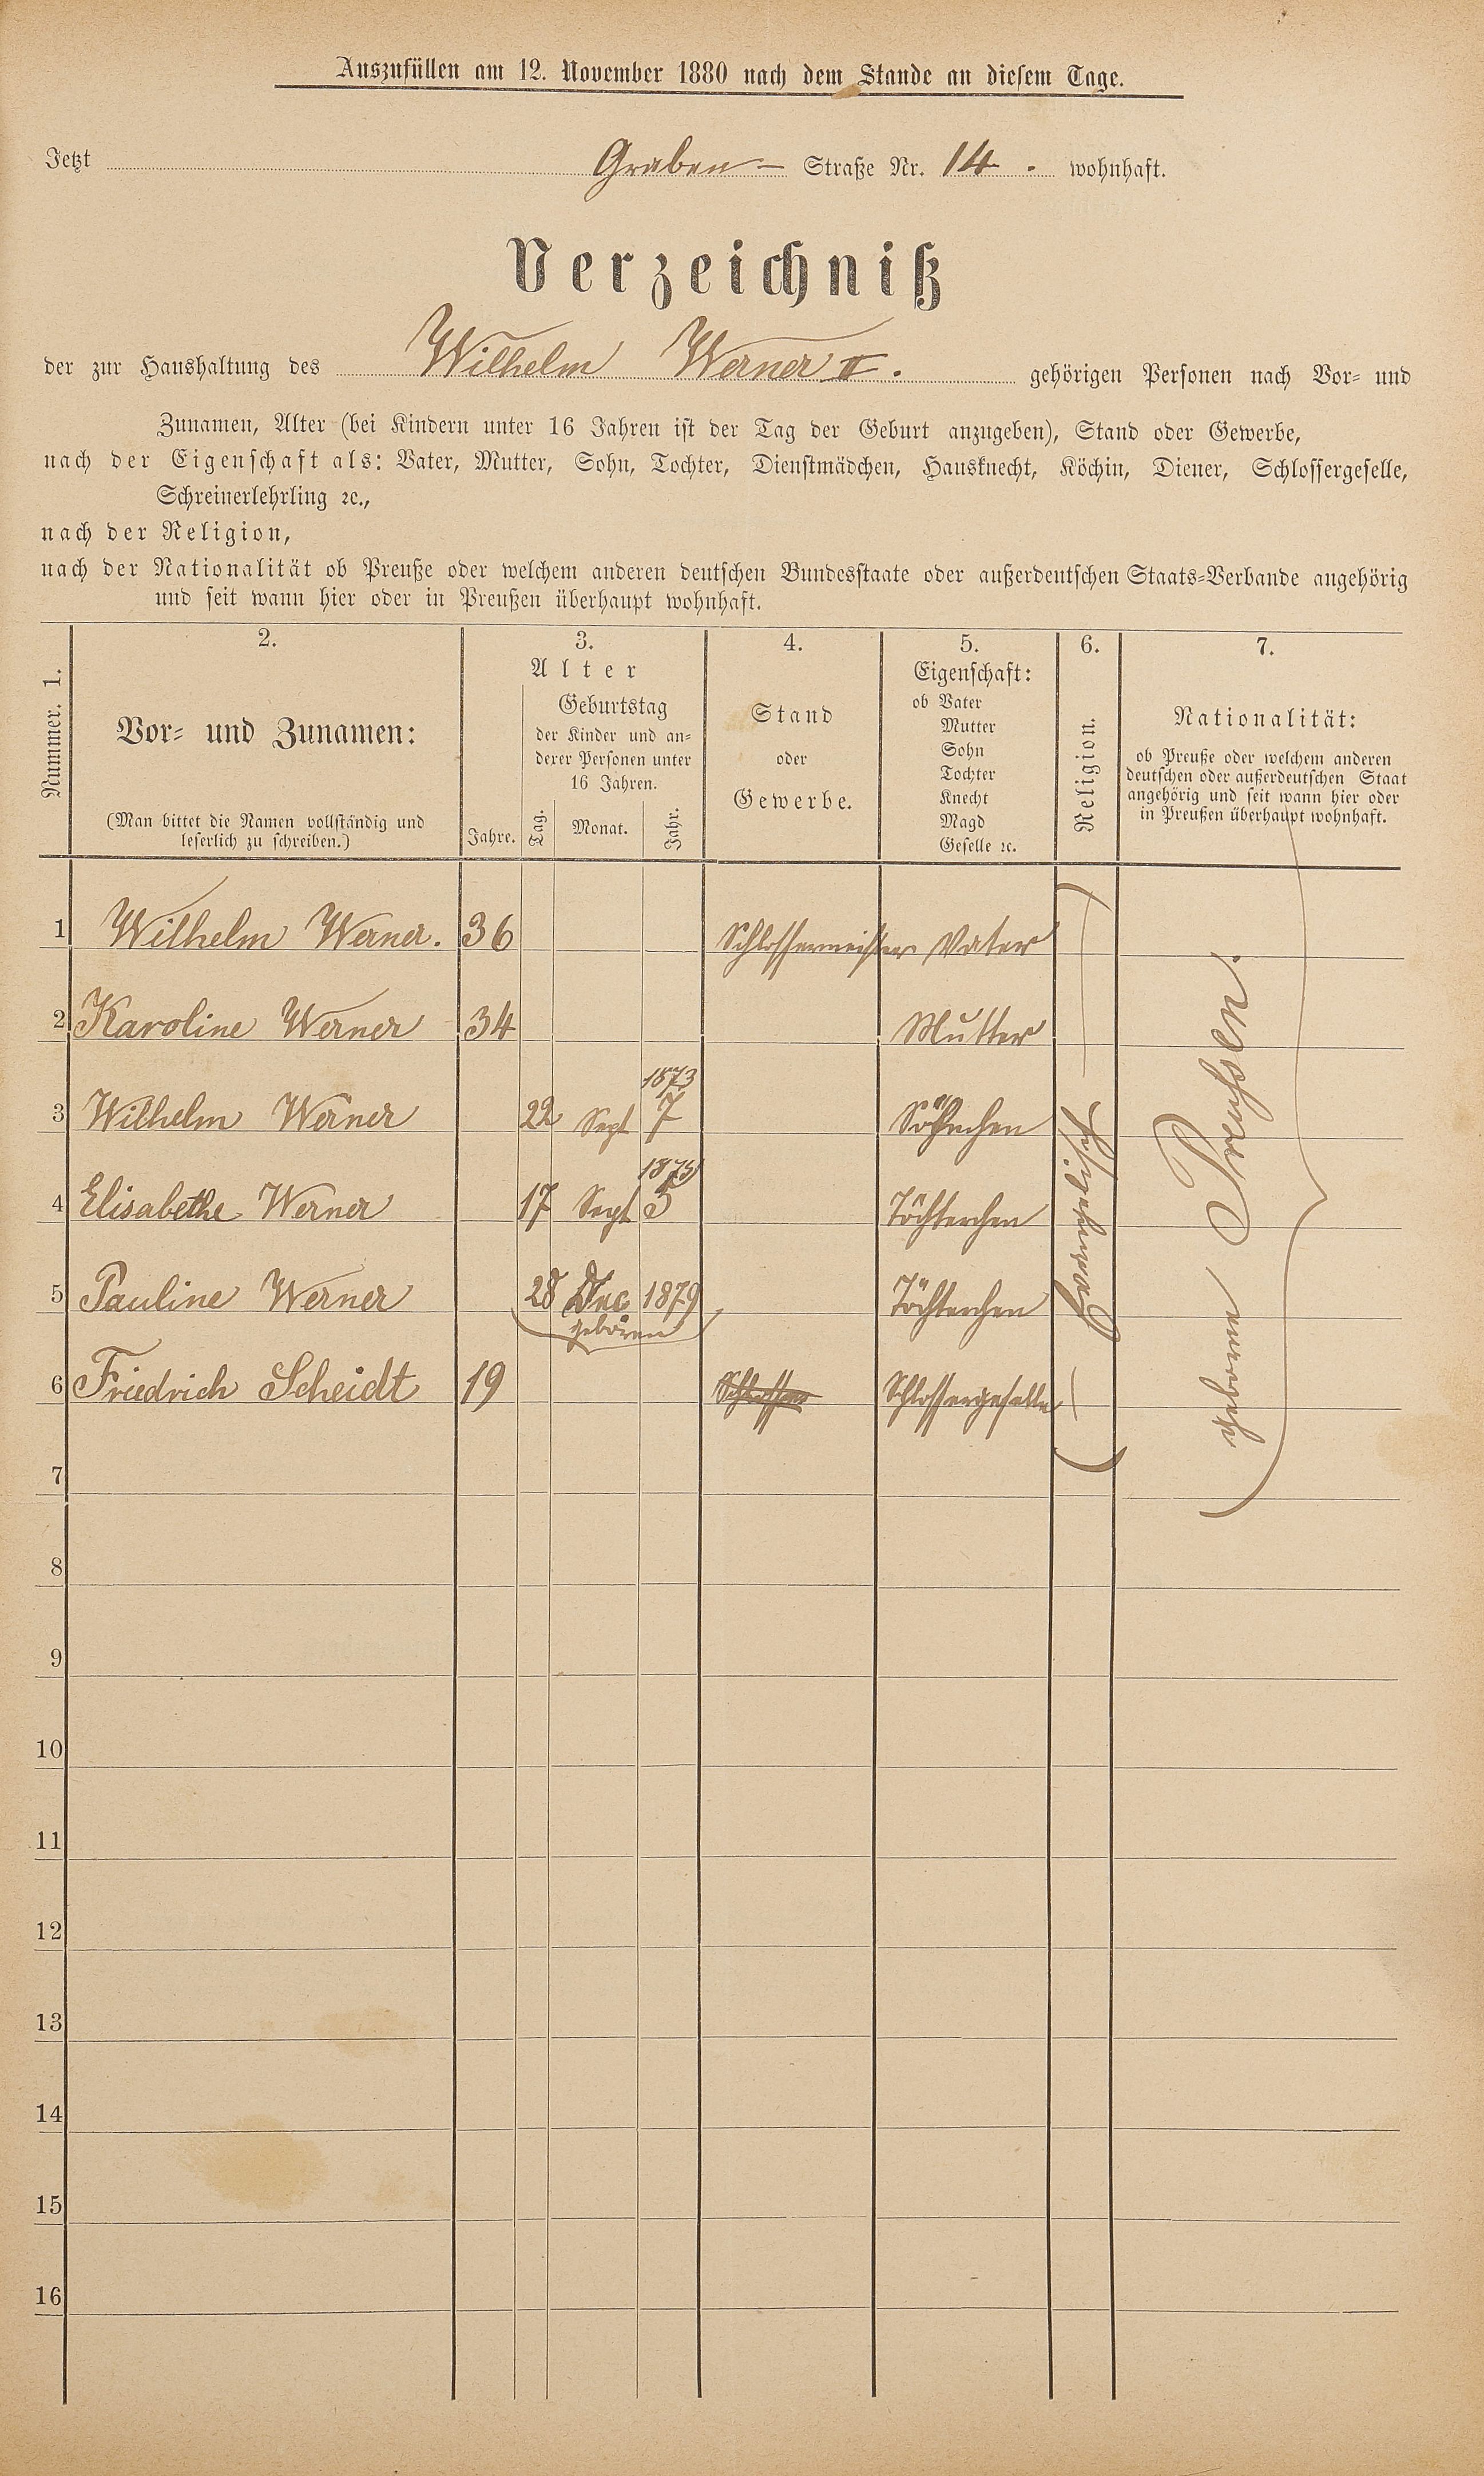 Auszufüllen am 12. November 1880 nach dem Stande an diesem Tage.
Jetzt Graben- Straße Nr. 14. wohnhaft.
Verzeichniß
der zur Haushaltung des Wilhelm Werner II. gehörigen Personen nach Vor- und
Zunamen, Alter (bei Kindern unter 16 Jahren ist der Tag der Geburt anzugeben), Stand oder Gewerbe,
nach der Eigenschaft als: Vater, Mutter, Sohn, Tochter, Dienstmädchen, Hausknecht, Köchin, Diener, Schlossergeselle,
Schreinerlehrling ꝛc.,
nach der Religion,
nach der Nationalität ob Preuße oder welchem anderen deutschen Bundesstaate oder außerdeutschen Staats-Verbande angehörig
und seit wann hier oder in Preußen überhaupt wohnhaft.
Nummer. 1.
2.
Vor- und Zunamen:
(Man bittet die Namen vollständig und
leserlich zu schreiben.)
3.
Alter
Jahre.
Geburtstag
der Kinder und an-
derer Personen unter
16 Jahren.
Tag.
Monat.
Jahr.
4.
Stand
oder
Gewerbe.
5.
Eigenschaft:
ob Vater
Mutter
Sohn
Tochter
Knecht
Magd
Geselle ꝛc.
6.
Religion.
7.
Nationalität:
ob Preuße oder welchem anderen
deutschen oder außerdeutschen Staat
angehörig und seit wann hier oder
in Preußen überhaupt wohnhaft.
1 Wilhelm Werner. 36 Schlossermeister Vater
2 Karoline Werner 34 Mutter
1873
3 Wilhelm Werner 22 Sept 7 Söhnchen
1875
4 Elisabethe Werner 17 Sept 5 Töchterchen
5 Pauline Werner 28 Dec 1879 Töchterchen
geboren
6 Friedrich Scheidt 19 Schlosser Schlossergeselle
Preußen.
7
8
9
10
11
12
13
14
15
16